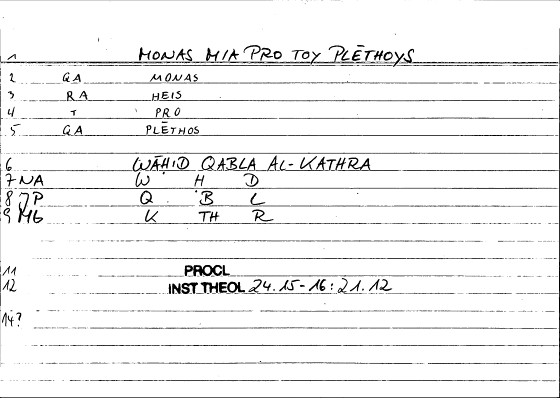 1 MONAS MIA PRO TOY PLĒTHOYS
2 GA MONAS
3 RA HEIS
4 T PRO
5 GA PLĒTHOS
6 WĀHID QABLA AL-KATHRA
7 NA W H D
8 JP Q B L
9 MG K TH R
11 PROCL
12 INST THEOL 24.15-16:21.12
14?